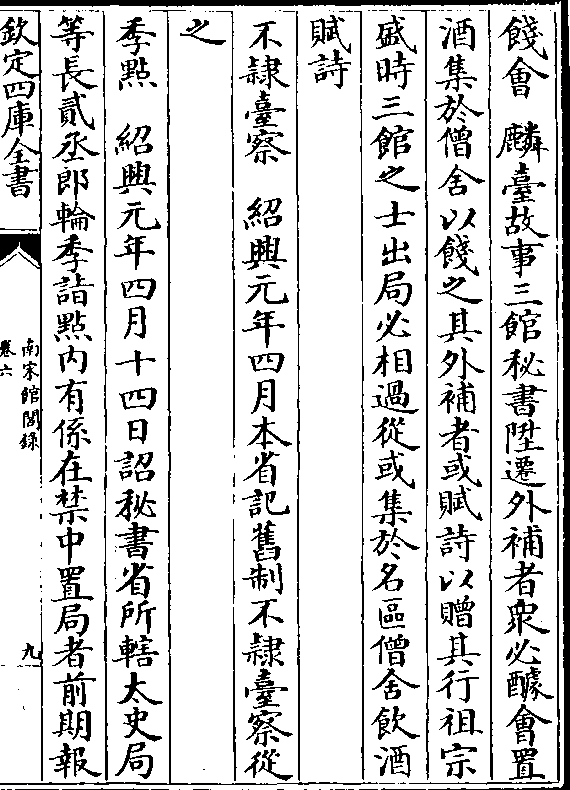 餞會　麟臺故事三館秘書陞遷外補者衆必醵會置
酒集於僧舍以餞之其外補者或賦詩以贈其行祖宗
盛時三館之士出局必相過從或集於名區僧舍飲酒
賦詩
不隷臺察　紹興元年四月本省記舊制不隷臺察從
之
季點　紹興元年四月十四日詔秘書省所轄太史局
等長貳丞郎輪季詣點内有係在禁中置局者前期報
欽定四庫全書
南宋館閣錄
卷六
九